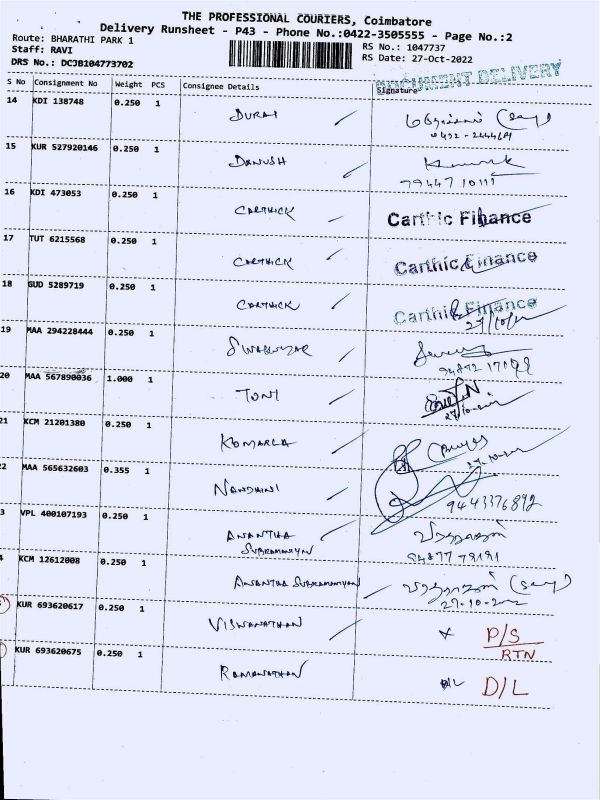 THE PROFESSIONAL COURIERS, Coimbatore
Delivery Runsheet - P43 - Phone No.:0422-3505555 - Page No.:2
Route: BHARATHI PARK 1
RS No.: 1047737
Staff: RAVI
RS Date: 27-Oct-2022
DRS No.: DCJB104773702
DOCUMENT DELIVERY
S No Consignment No Weight PCS Consignee Details Signature
14 KDI 138748 0.250 1 DURAI
0422-2444601
15 KUR 527920146 0.250 1 DANUSH
79447 10111
16 KDI 473053 0.250 1 CARTHICK Carthic Finance
17 TUT 6215568 0.250 1 CARTHICK Carthic Finance
18 GUD 5289719 0.250 1 CARTHICK Carthic Finance
27/10/22
19 MAA 294228444 0.250 1 SIVAKUMAR
20 MAA 567890036 1.000 1 TONY
21 KCM 21201380 0.250 1 KOMALA
22 MAA 565632603 0.355 1 NANDHINI
9443376892
3 VPL 400107193 0.250 1 ANANTHA
SUBRAMANIYAN
94877 79191
4 KCM 12612008 0.250 1 ANANTHA SUBRAMANIYAN
27-10-2022
KUR 693620617 0.250 1 VISWANATHAN P/S
RTN
KUR 693620675 0.250 1 RAMANATHAN D/L D/L